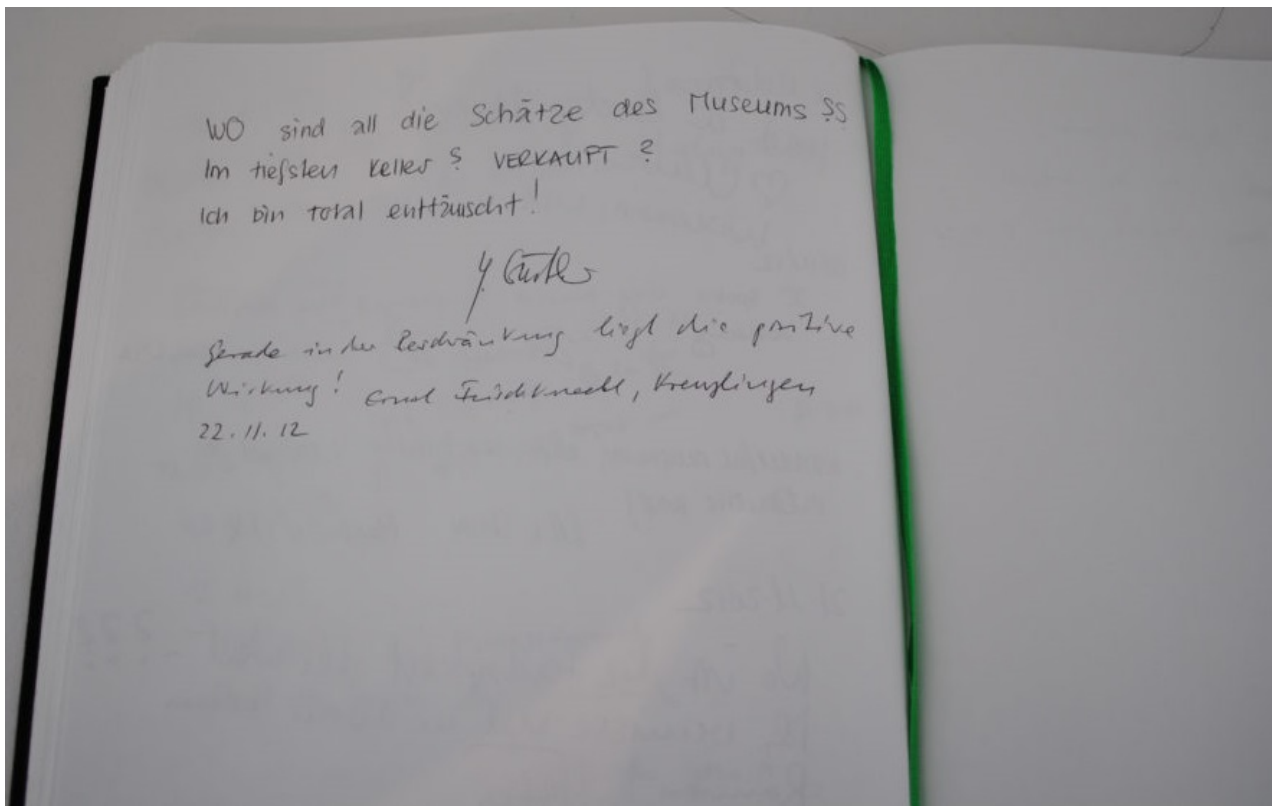 WO sind all die Schätze des Museums ??
Im tiefsten Keller ? VERKAUFT ?
Ich bin total enttäuscht!
Gerade in der Beschränkung liegt die positive
Wirkung! Ernst Frischknecht, Kreuzlingen
22.11.12